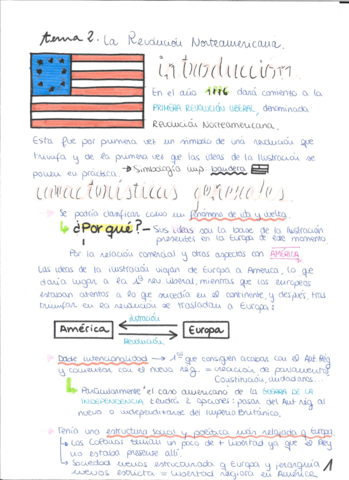 tema 2. La Revolución Norteamericana.
introducción.
En el año 1776 dará comienzo a la
PRIMERA REVOLUCIÓN LIBERAL, denominada
Revolución Norteamericana.
Esta fue por primera vez un modelo de una revolución que
triunfa y de la primera vez que las ideas de la Ilustración se
ponen en práctica. → Simbología imp. bandera
características generales
Se podría clasificar como un fenómeno de ida y vuelta.
¿Por qué? – Sus ideas son la base de la Ilustración
presentes en la Europa de este momento
Por la relación comercial y otros aspectos con AMÉRICA
Las ideas de la ilustración viajan de Europa a América, lo que
daría lugar a la 1ª rev liberal, mientras que los europeos
estaban atentos a lo que sucedía en el continente, y después, tras
triunfar en la revolución se trasladan a Europa:
ilustración
América Europa
Revolución
Doble intencionalidad → 1ºs que consiguen acabar con el Ant Rég
y comenzar con el nuevo rég. = creación de parlamentos,
Constitución, ciudadanos...
Particularmente el caso americano de la GUERRA DE LA
INDEPENDENCIA tendrá 2 opciones: pasar del Ant rég al
nuevo o independizarse del Imperio Británico.
Tenía una estructura social y política más relajada q Europa
Las Colonias tenían un poco de + libertad ya que el Rey
no estaba presente allí.
Sociedad menos estructurada q Europa y jerarquía
menos estricta = libertad religiosa en América.
1